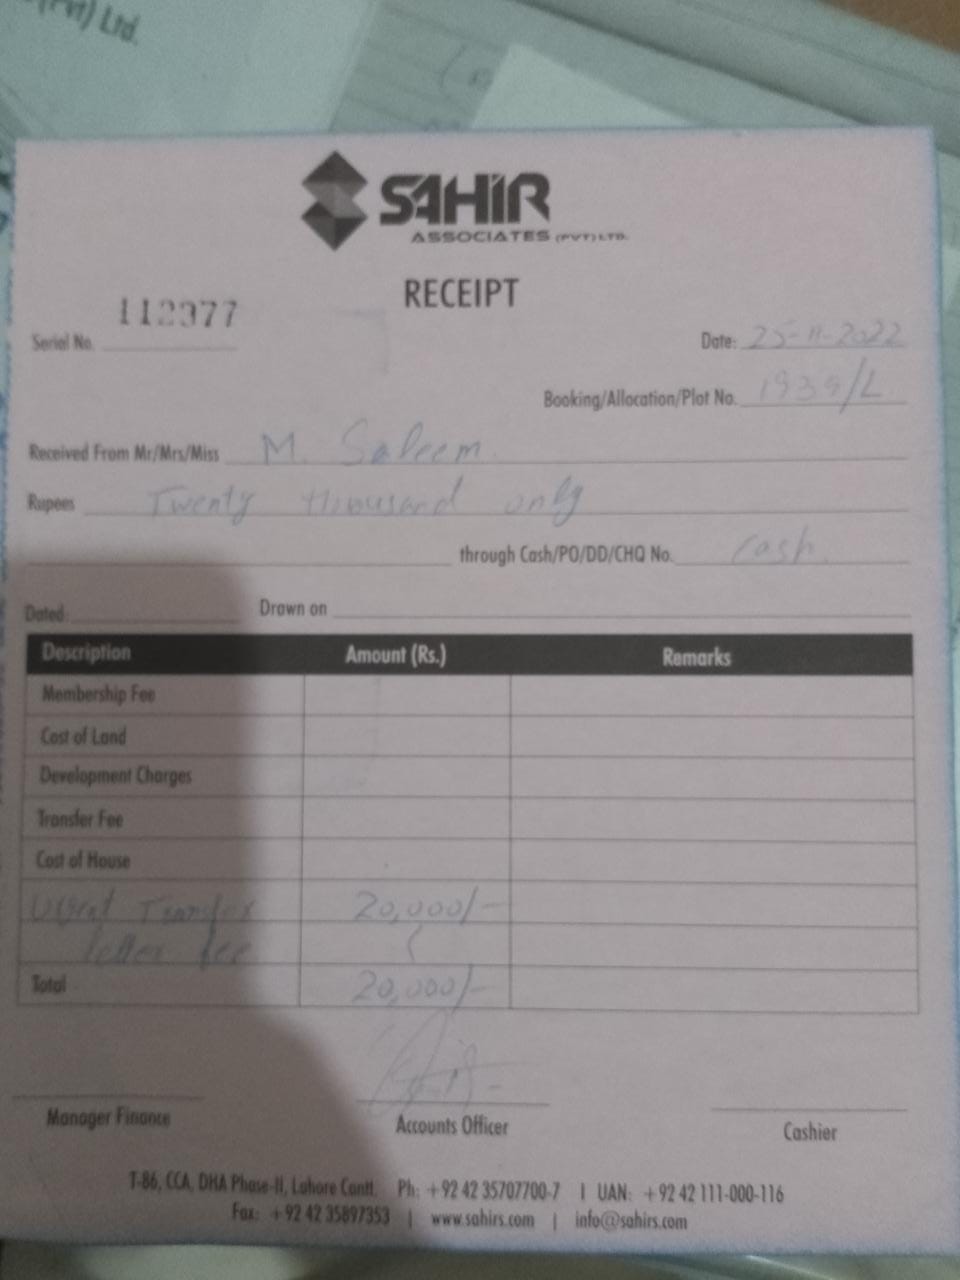 (Pvt) Ltd.
SAHIR
ASSOCIATES (PVT) LTD.
RECEIPT
Serial No. 112977
Date: 25-11-2022
Booking/Allocation/Plot No. 1939/L
Received From Mr/Mrs/Miss M. Saleem
Rupees Twenty thousand only
through Cash/PO/DD/CHQ No. Cash
Dated: Drawn on
Description Amount (Rs.) Remarks
Membership Fee
Cost of Land
Development Charges
Transfer Fee
Cost of House
Urgent Transfer 20,000/-
letter fee
Total 20,000/-
Manager Finance Accounts Officer Cashier
T-86, CCA, DHA Phase-II, Lahore Cantt. Ph: +92 42 35707700-7 | UAN: +92 42 111-000-116
Fax: +92 42 35897353 | www.sahirs.com | info@sahirs.com